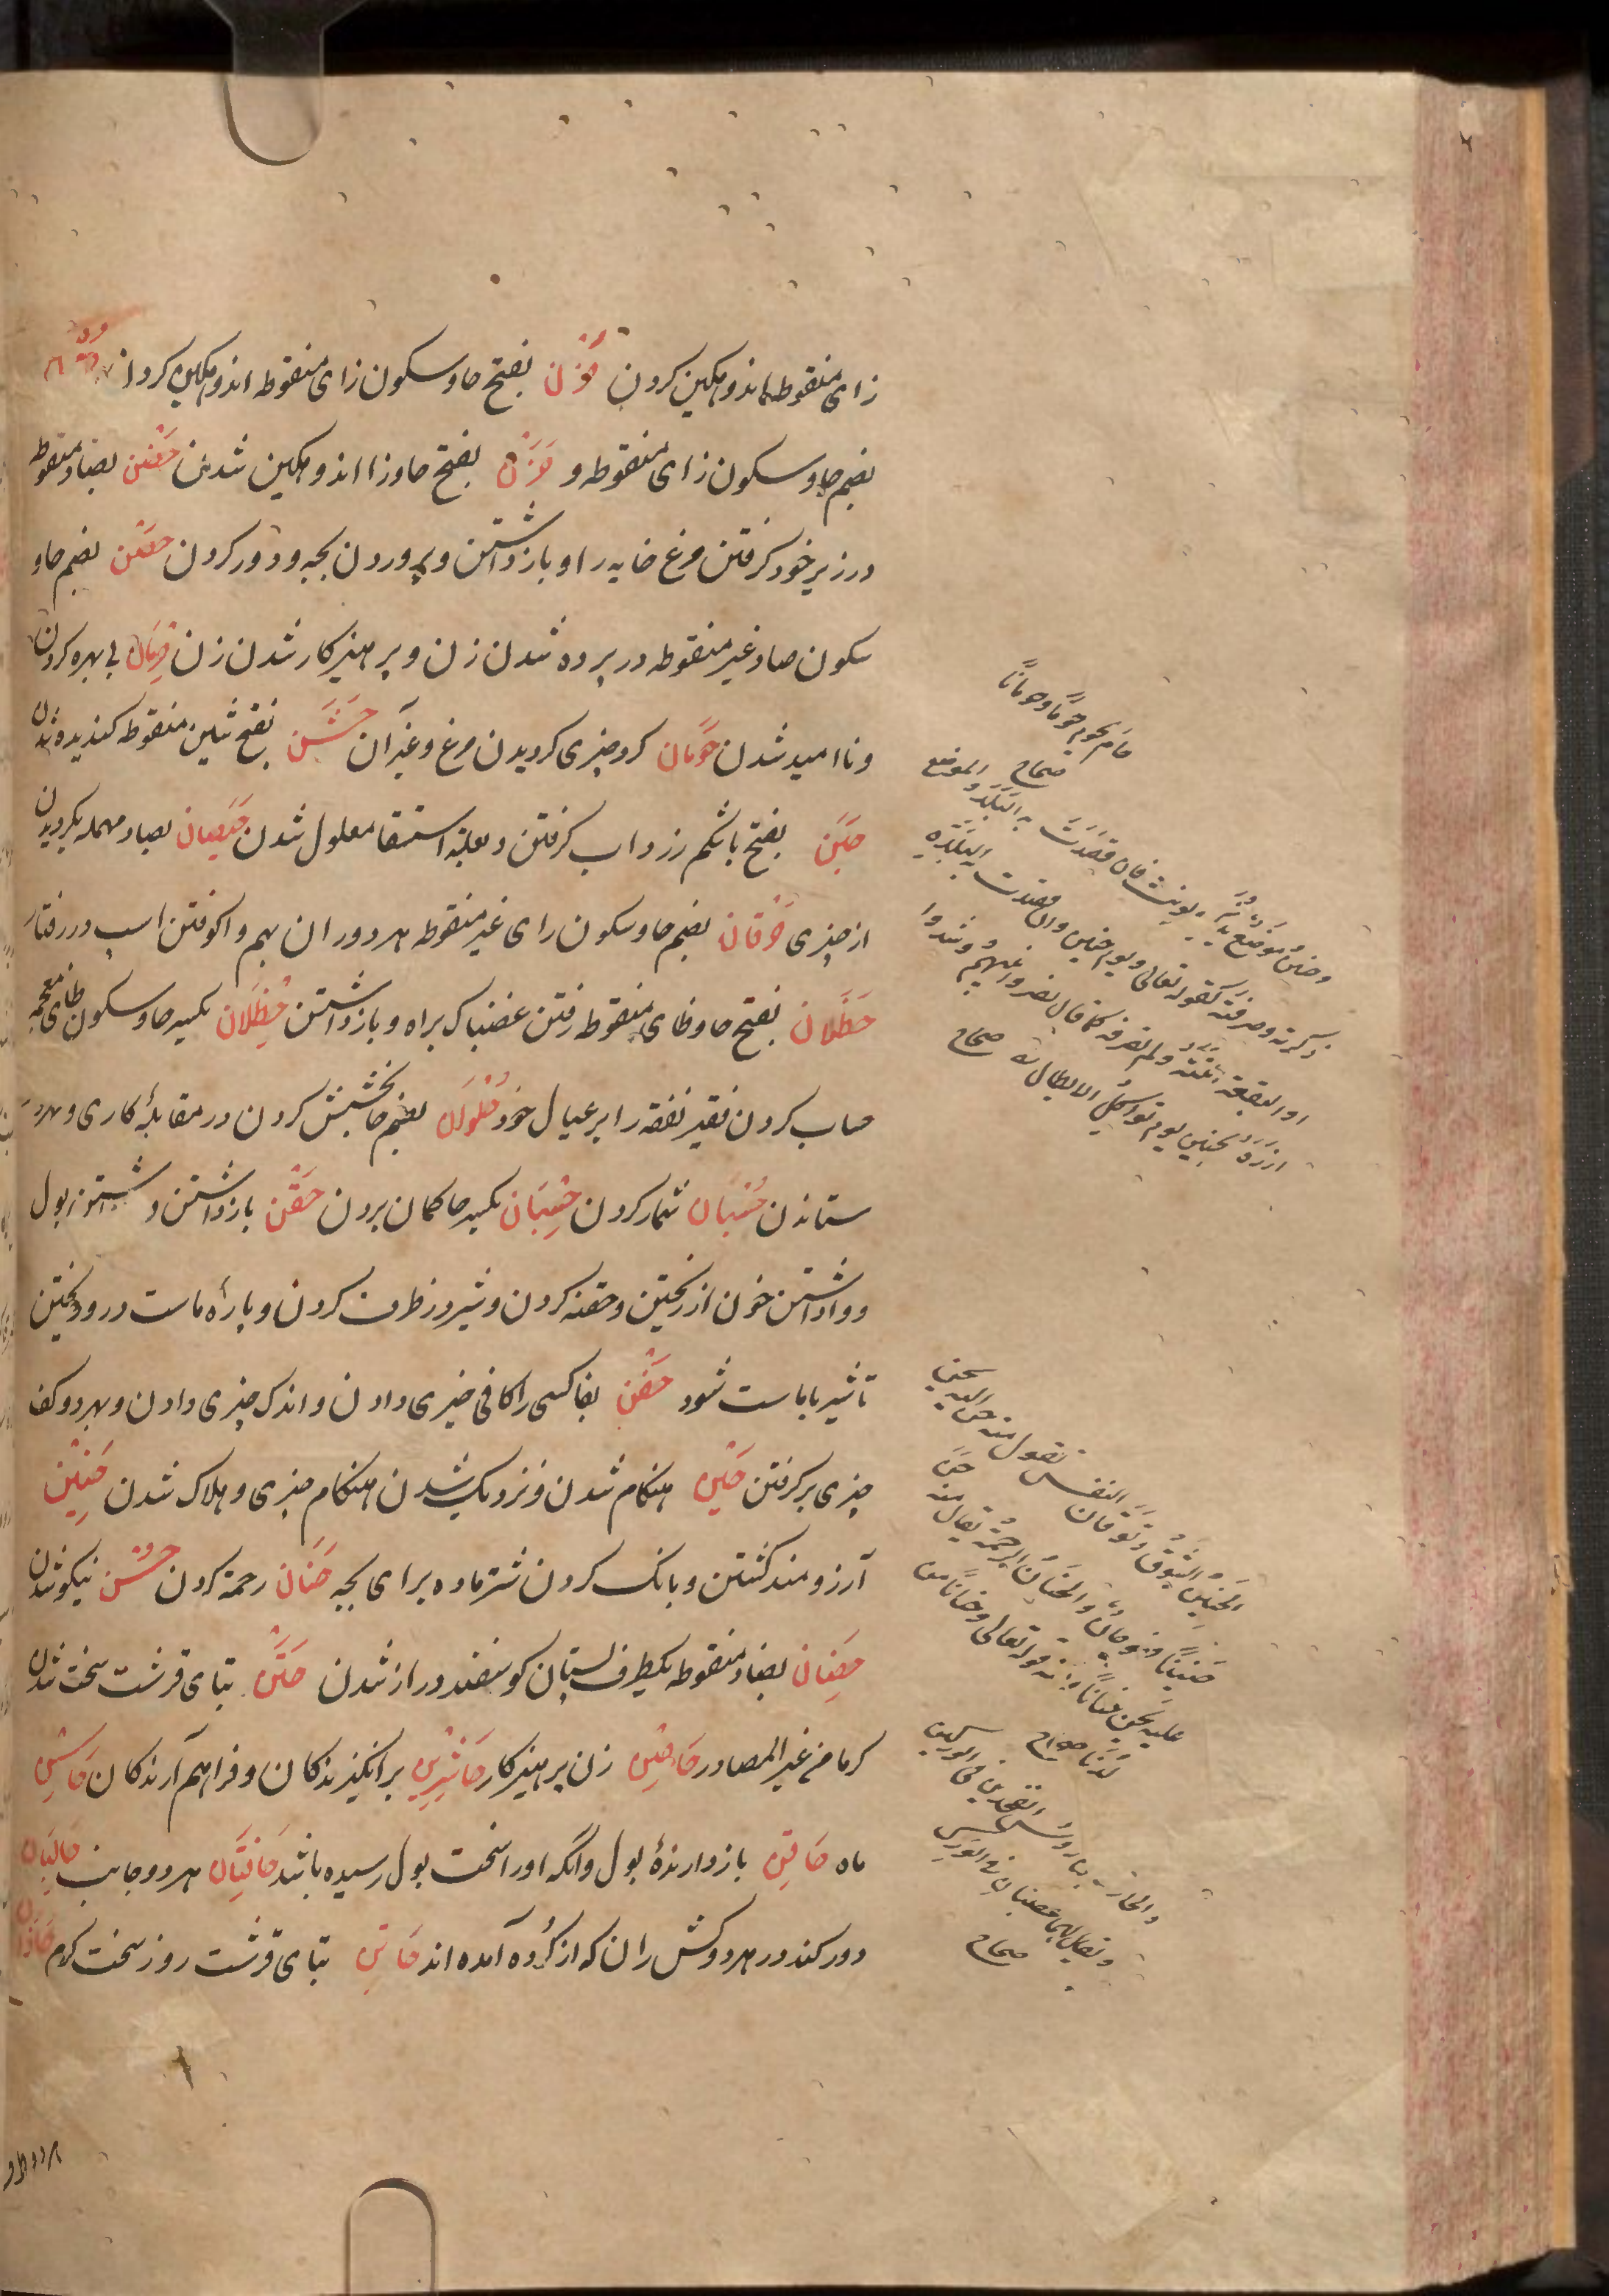 زای منقوطه اندوهکین کردن حَزْن بفتح حا و سکون زای منقوطه اندوهکین کردن
بضم حا و سکون زای منقوطه و حَزَن بفتح حا و زا اندوهکین شدن حَضْن بضاد منقوطه
در زیر خود کرفتن مرغ خایه را و بازداشتن و پروردن بچه و دور کردن حصْن بضم حا و
سکون صاد غیر منقوطه در پرده شدن زن و پرهیزکار شدن زن حِرمَان بی بهره کردن
و ناامید شدن حَوَمَان کرد چیزی کردیدن مرغ و غیر آن حَشَن بفتح شین منقوطه کندیده شدن
حَبَن بفتح با شکم زرداب کرفتن و بعلة استسقا معلول شدن حَیَصان بصاد مهمله بکردیدن
از چیزی حُرقان بضم حا و سکون رای غیر منقوطه هر دو ران بهم واکوفتن اسپ در رفتار
حَظَلان بفتح حا و ظای منقوطه رفتن غضبناک براه و بازداشتن حِظْلان بکسر حا و سکون ظای معجمه
حساب کردن فقیر نفقه را بر عیال خود حُلْوان بضم حا بخشش کردن در مقابلهٔ کاری و مهر
ستاندن حُسْبَان شمار کردن حِسْبَان بکسر حا کمان بردن حَقْن بازداشتن بول
و واداشتن خون از ریختن و حقنه کردن و شیر در ظرف کردن و پارهٔ ماست درو ریختن
تا شیر با ماست شود حَفْن بفا کسی را کافی چیزی دادن و اندک چیزی دادن و بهر دو کف
چیزی برکرفتن حَیْن هنکام شدن و نزدیک شدن هنکام چیزی و هلاک شدن حَنِیْن
آرزومند کشتن و بانک کردن شتر ماده برای بچه حَنَان رحمة کردن حُسْن نیکو شدن
حِضَان بضاد منقوطه یکطرف پستان کوسفند دراز شدن حَتْن بتای قرشت سخت شدن
کرما من غیر المصادر حَاصِن زن پرهیزکار حَاشِرِین برانکیزندکان و فراهم آرندکان
ماه حَاقِن بازدارندهٔ بول و آنکه او را سخت بول رسیده باشد حَافَتَان هر دو جانب حَالِبَان
دو رکند در هر دو کش ران که از کرده آمده اند حَاتِن بتای قرشت روز سخت کرم
حام یحوم حوما و حومانا
صحاح
وحنین موضع یذکر و یونث فان قصدت به البلد والموضع
ذکرته وصرفته کقوله تعالی ویوم حنین وان قصدت به البلدة
او البقعة انثته ولم تصرفه کما قال نصروا نبیهم وشدوا
ازره بحنین یوم تواکل الابطال صحاح
الحنین الشوق وتوقان النفس تقول منه حن الیه یحن
حنینا فهو حان والحنان الرحمة یقال منه حن
علیه یحن حنانا ومنه قوله تعالی وحنانا من
لدنا صحاح
صحاح